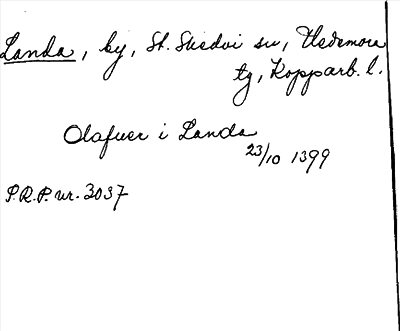 Landa, by, St. Skedvi sn, Hedemora
tg, Kopparb. l.
Olafuer i Landa
23/10 1399
P.R.P. nr. 3037